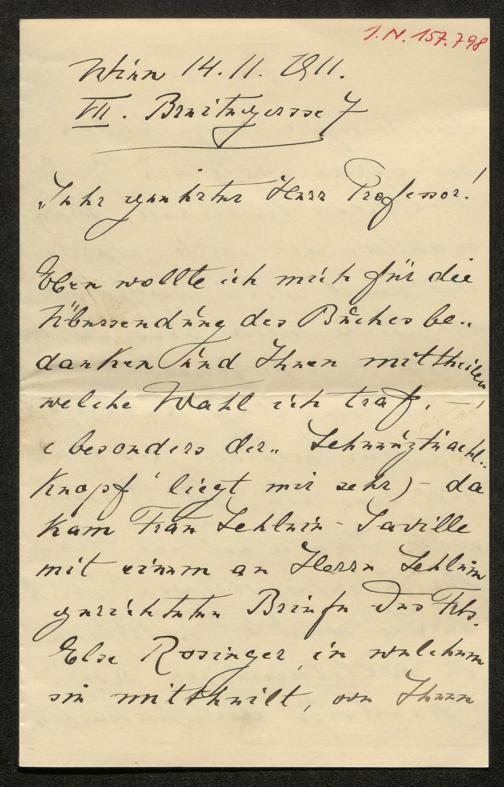 I.N. 157.798
Wien 14.11.1911.
VII. Breitegasse 7
Sehr geehrter Herr Professor!
Eben wollte ich mich für die
Übersendung des Buches be..
danken und Ihnen mittheilen
welche Wahl ich traf, —
(besonders der „
Knopf" liegt mir sehr) - da
kam Frau Schlein - Saville
mit einem an Herrn Schlein
gerichteten Briefe des Frls.
Else Rosinger, in welchem
sie mittheilt, von Ihnen